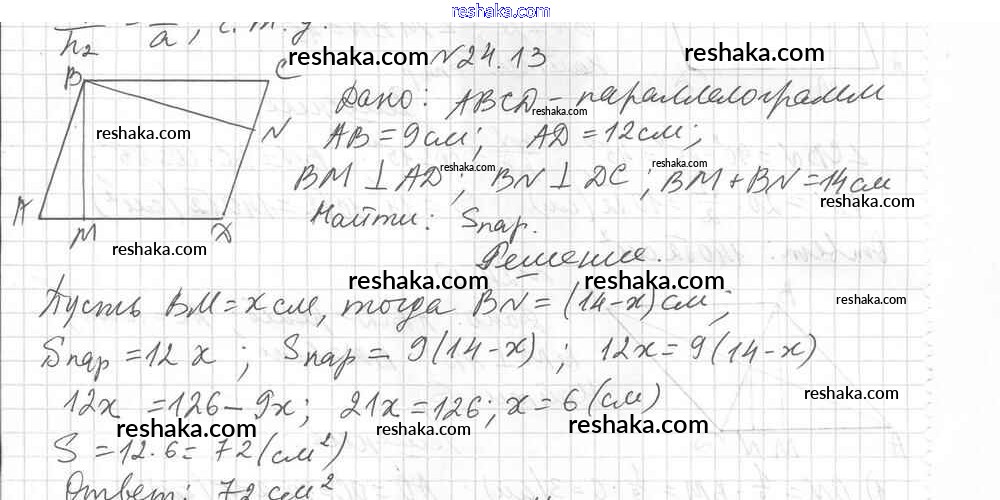 reshaka.com
h₂ = a, ч.т.д. reshaka.com
reshaka.com №24.13
B C
Дано: ABCD - параллелограмм
reshaka.com
reshaka.com N AB = 9 см; AD = 12 см;
reshaka.com reshaka.com
BM ⊥ AD; BN ⊥ DC; BM + BN = 14 см
reshaka.com
A M D Найти: Sпар.
reshaka.com Решение.
reshaka.com reshaka.com
Пусть BM = x см, тогда BN = (14-x) см; reshaka.com
Sпар = 12 x; Sпар = 9(14-x); 12x = 9(14-x)
reshaka.com
12x = 126 - 9x; 21x = 126; x = 6 (см)
reshaka.com reshaka.com reshaka.com
S = 12·6 = 72 (см²)
Ответ: 72 см²